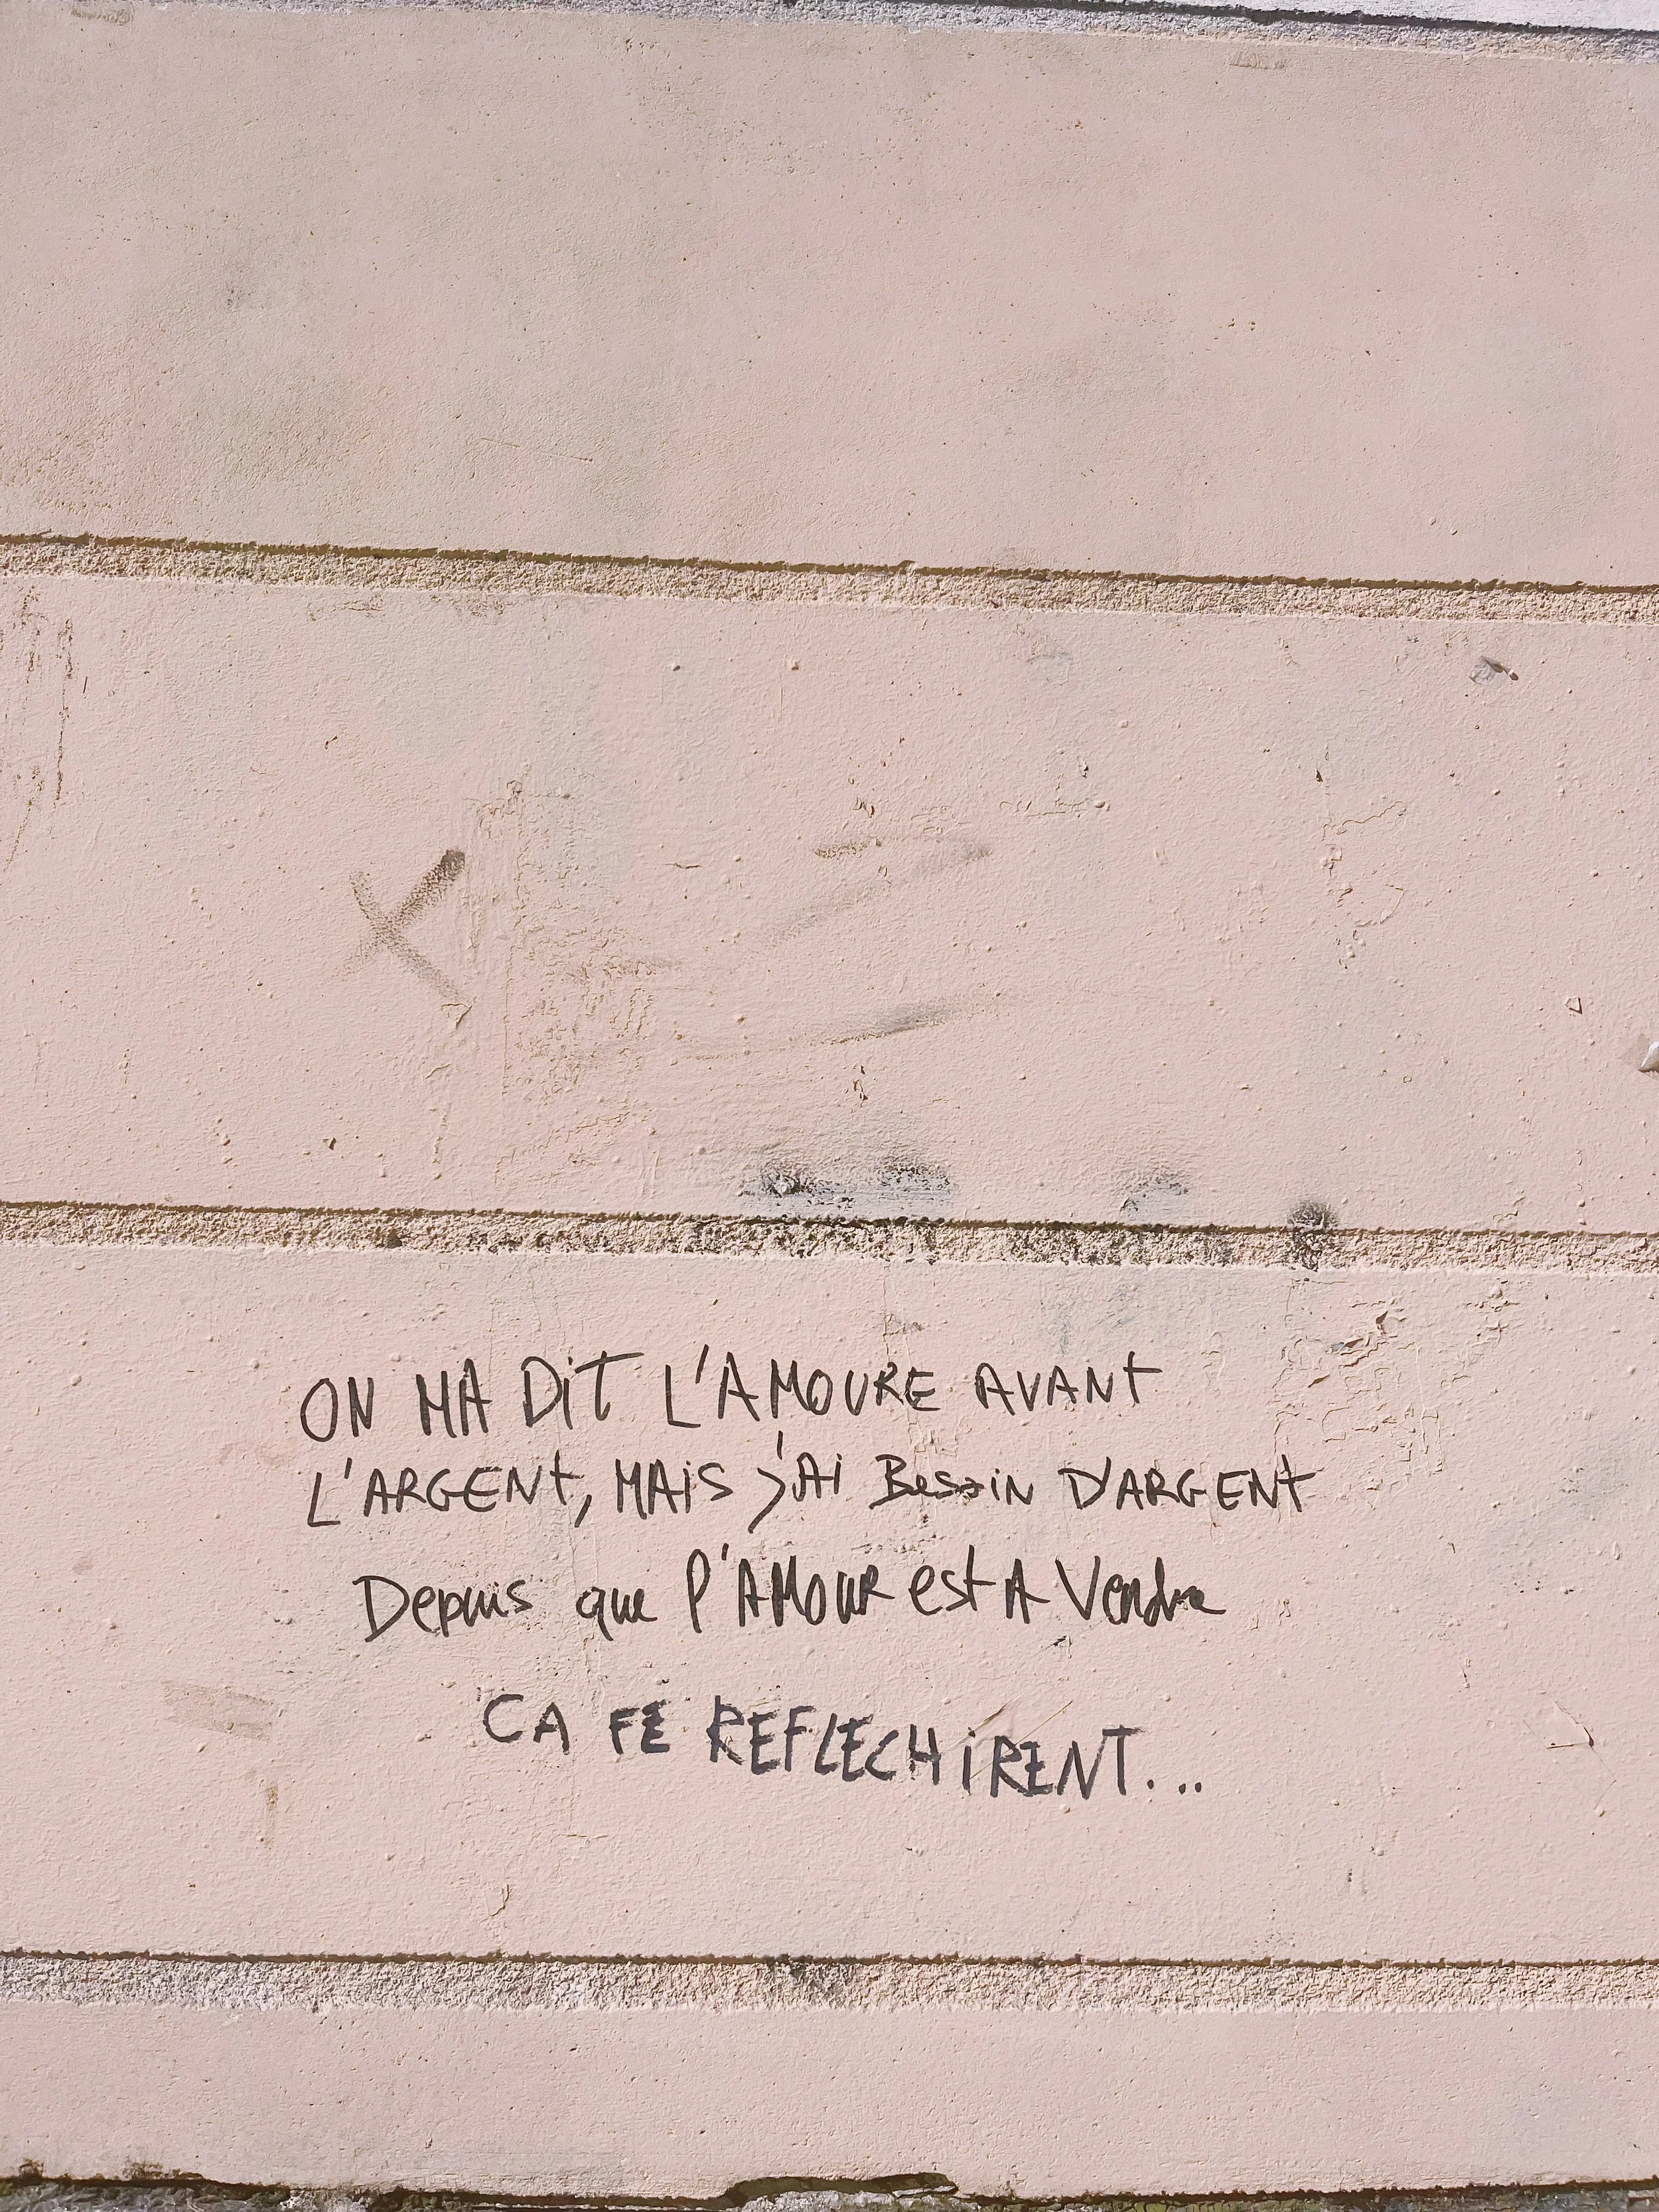 ON MA DiT L'AMOURE AVANT
L'ARGENT, MAiS j'Ai BesoiN D'ARGENT
Depuis que l'AMOUR est A Vendre
CA FE REFLECHiRENT...